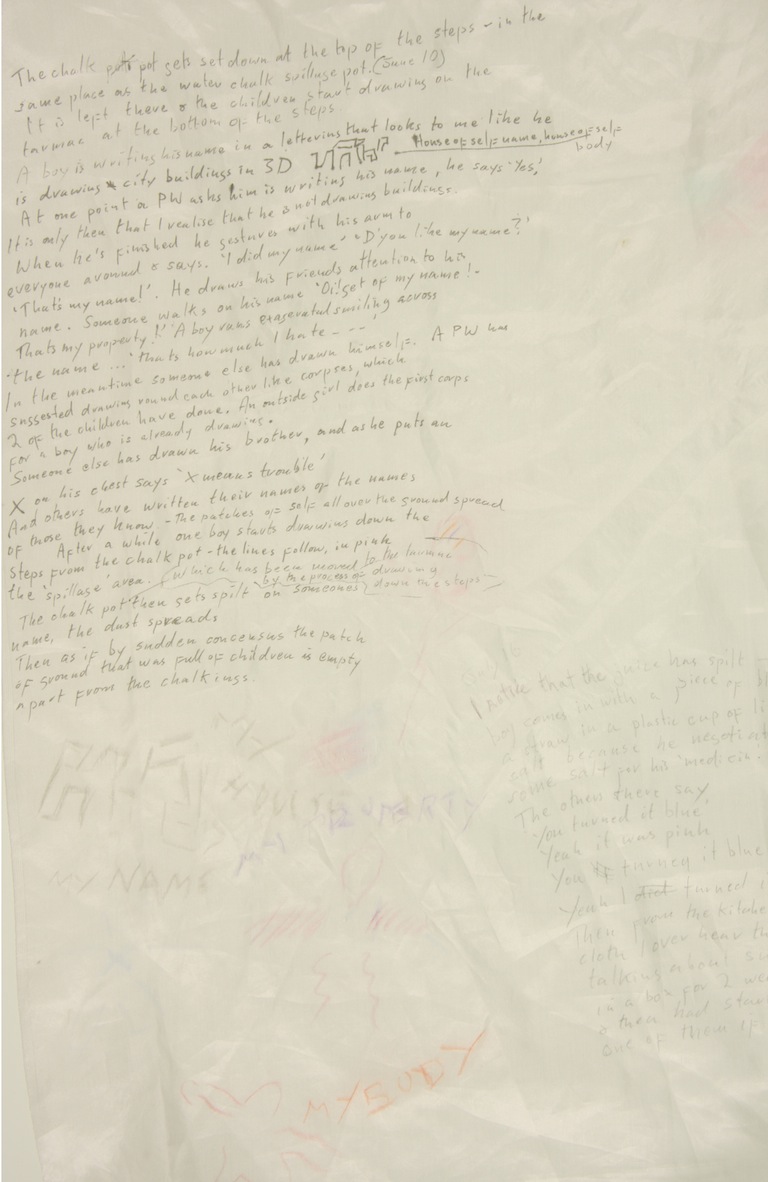 The chalk pot pot gets set down at the top of the steps - in the
same place as the water chalk spillage pot. (June 10)
It is left there & the children start drawing on the
tarmac at the bottom of the steps.
A boy is writing his name in a lettering that looks to me like he
is drawing city buildings in 3D
House of self name, house of self
body
At one point a PW asks him is writing his name, he says 'Yes,'
It is only then that I realise that he is not drawing buildings.
When he's finished he gestures with his arm to
everyone around & says. 'I did my name' 'D'you like my name?'
'That's my name!'. He draws his friends attention to his
name. Someone walks on his name 'Oi! get of my name!.
Thats my property!' A boy runs exagerated smiling across
the name ... 'thats how much I hate - - -'
In the meantime someone else has drawn himself. A PW has
suggested drawing round each other like corpses, which
2 of the children have done. An outside girl does the first corps
for a boy who is already drawing.
Someone else has drawn his brother, and as he puts an
X on his chest says 'X means trouble'
And others have written their names or the names
of those they know. - The patches of self all over the ground spread
After a while one boy starts drawing down the
steps from the chalk pot - the lines follow, in pink
the 'spillage' area. (which has been moved to the tarmac
by the process of drawing
down the steps)
The chalk pot then gets spilt on someones
name, the dust spreads
Then as if by sudden concensus the patch
of ground that was full of children is empty
apart from the chalkings.
I notice that the juice has spilt -
boy comes in with a piece of
a straw in a plastic cup of
salt because he
some salt for his 'medicin.
The others there say
'You turned it blue'
Yeah it was pink
You turney it blue
Yeah I did turned
Then from the
cloth I over hear
talking about
in a box for 2
& then had
one of them if
MY
PROPERTY
MY NAME
MY BODY